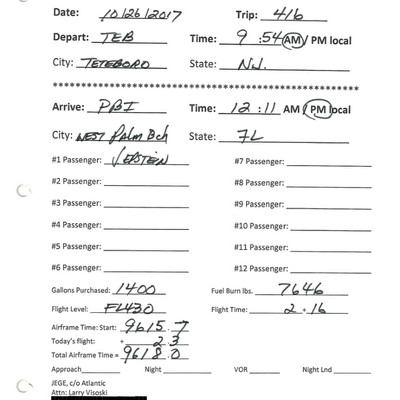 Date: 10/26/2017 Trip: 416
Depart: TEB Time: 9 :54 AM / PM local
City: TETEBORO State: NJ.
Arrive: PBI Time: 12 :11 AM / PM local
City: WEST Palm Bch State: FL
#1 Passenger: #7 Passenger:
#2 Passenger: #8 Passenger:
#3 Passenger: #9 Passenger:
#4 Passenger: #10 Passenger:
#5 Passenger: #11 Passenger:
#6 Passenger: #12 Passenger:
Gallons Purchased: 1400 Fuel Burn lbs. 7646
Flight Level: FL430 Flight Time: 2 + 16
Airframe Time: Start: 9615.7
Today's flight: + 2.3
Total Airframe Time = 9618.0
Approach Night VOR Night Lnd
JEGE, c/o Atlantic
Attn: Larry Visoski